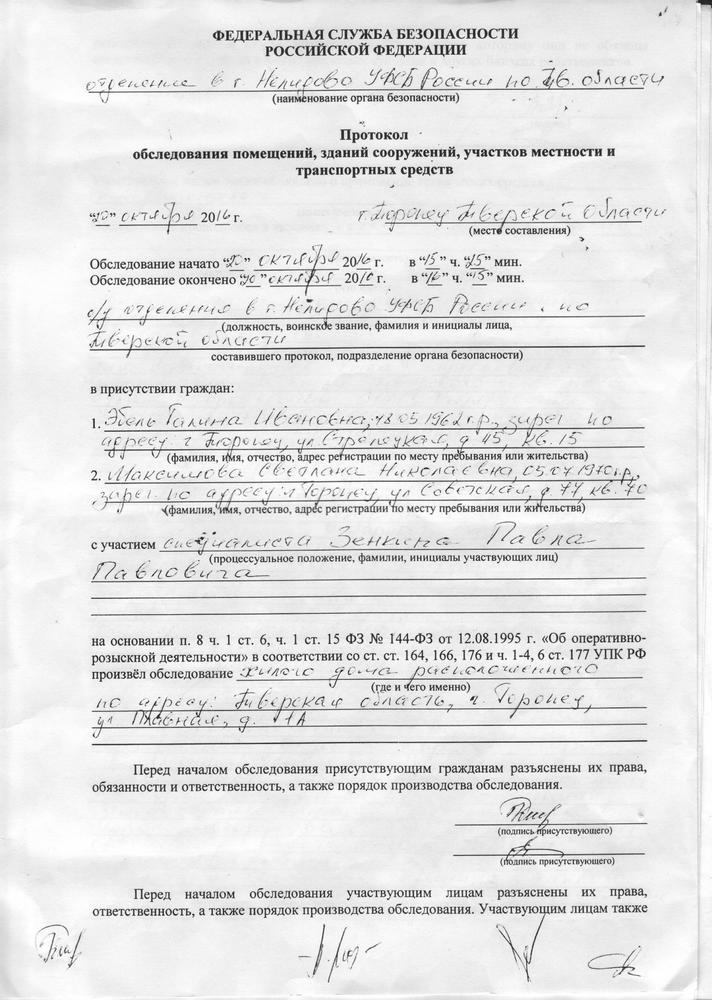 ФЕДЕРАЛЬНАЯ СЛУЖБА БЕЗОПАСНОСТИ
РОССИЙСКОЙ ФЕДЕРАЦИИ
отделение в г. Нелидово УФСБ России по Тв. области
(наименование органа безопасности)
Протокол
обследования помещений, зданий сооружений, участков местности и
транспортных средств
октября 2016 г.
г. Торопец Тверской области
(место составления)
Обследование начато "20" октября 2016 г. в "15" ч. "25" мин.
Обследование окончено "20" октября 2016 г. в "16" ч. "15" мин.
о/у отделения в г. Нелидово УФСБ России по
(должность, воинское звание, фамилия и инициалы лица,
Тверской области
составившего протокол, подразделение органа безопасности)
в присутствии граждан:
1. Эбель Галина Ивановна, 18.05.1962 г.р., зарег. по
адресу: г. Торопец, ул. Стрелецкая, д. 45, кв. 15
(фамилия, имя, отчество, адрес регистрации по месту пребывания или жительства)
2. Максимова Светлана Николаевна, 05.07.1970 г.р.,
зарег. по адресу: г. Торопец, ул. Советская, д. 77, кв. 70
(фамилия, имя, отчество, адрес регистрации по месту пребывания или жительства)
с участием специалиста Зенкина Павла
(процессуальное положение, фамилии, инициалы участвующих лиц)
Павловича
на основании п. 8 ч. 1 ст. 6, ч. 1 ст. 15 ФЗ № 144-ФЗ от 12.08.1995 г. «Об оперативно-
розыскной деятельности» в соответствии со ст. ст. 164, 166, 176 и ч. 1-4, 6 ст. 177 УПК РФ
произвёл обследование жилого дома расположенного
(где и чего именно)
по адресу: Тверская область, г. Торопец,
ул. Главная, д. 1А
Перед началом обследования присутствующим гражданам разъяснены их права,
обязанности и ответственность, а также порядок производства обследования.
(подпись присутствующего)
(подпись присутствующего)
Перед началом обследования участвующим лицам разъяснены их права,
ответственность, а также порядок производства обследования. Участвующим лицам также